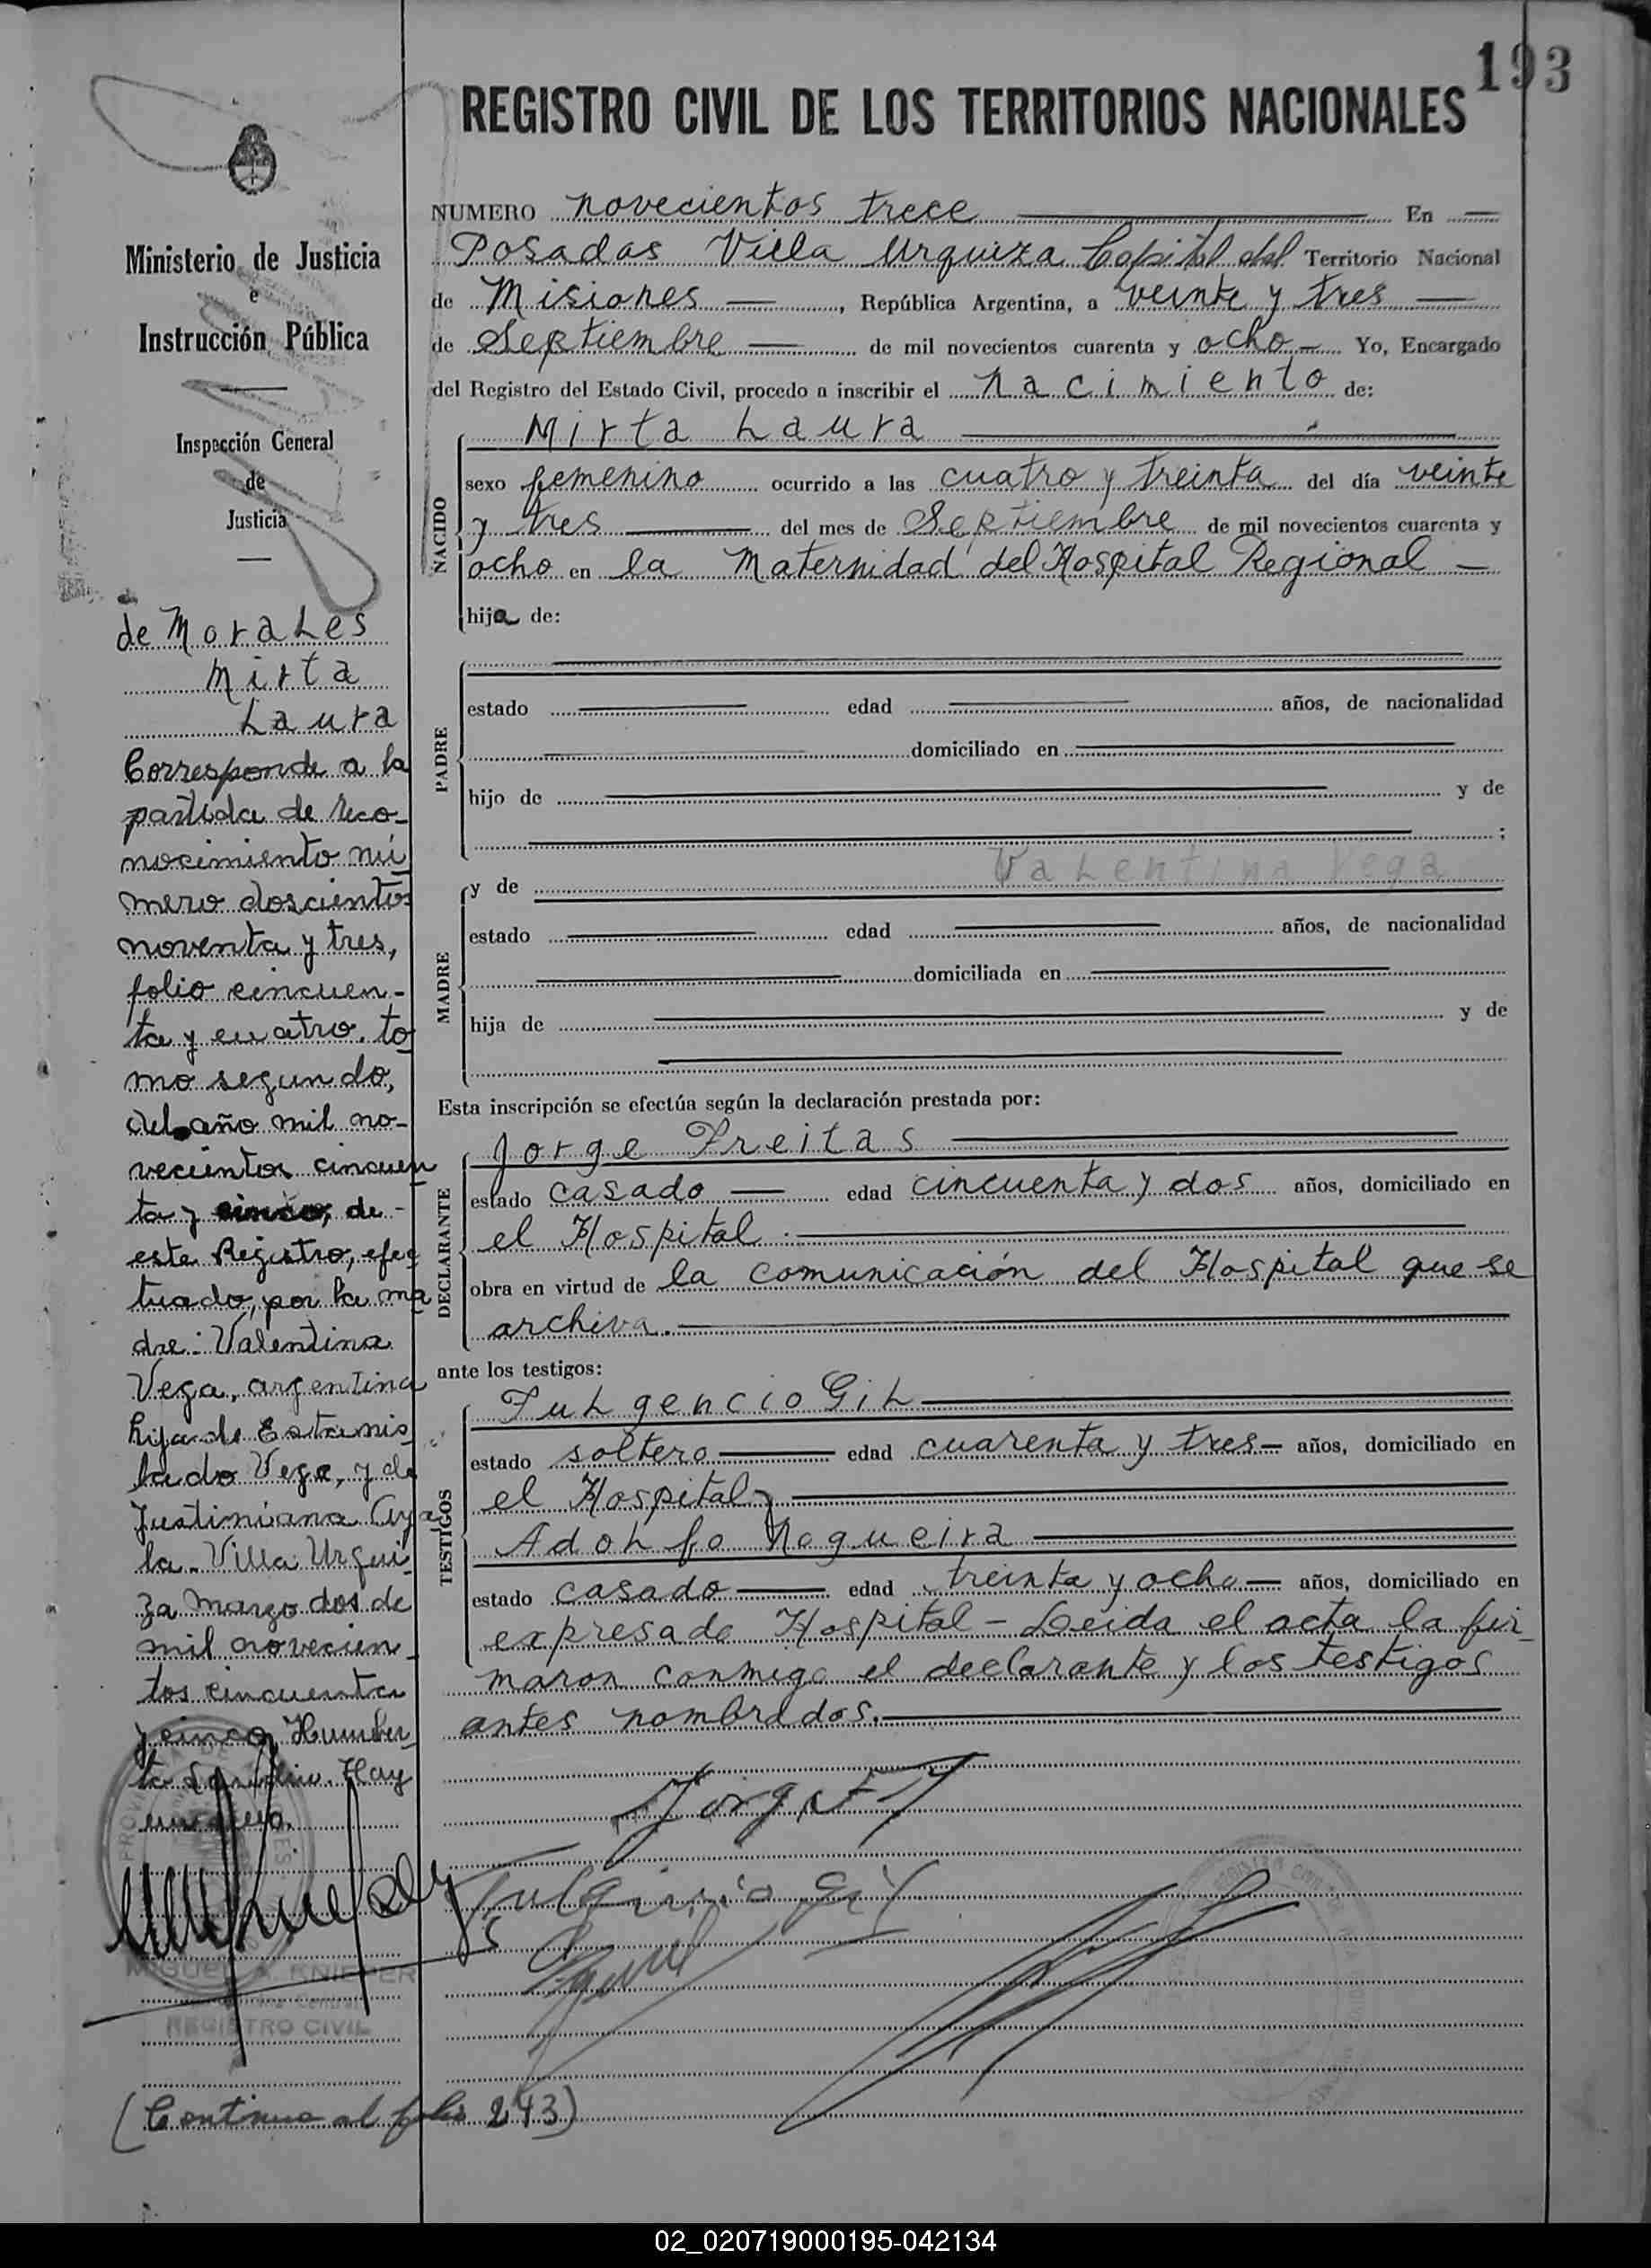 193
REGISTRO CIVIL DE LOS TERRITORIOS NACIONALES
Ministerio de Justicia
e
Instrucción Pública
Inspección General
de
Justicia
de Morales
Mirta
Laura
Corresponde a la
partida de reco-
nocimiento nú
mero doscientos
noventa y tres,
folio cincuen-
ta y cuatro, to
mo segundo,
del año mil no-
vecientos cincuen
ta y cinco, de
este Registro, efec
tuado, por la ma
dre: Valentina
Vega, argentina
hija de Estanis
lado Vega, y de
Justiniana Aya
la. Villa Urqui
za marzo dos de
mil novecien
tos cincuenta
y cinco, Humber
to Hay
PROVINCIA DE MISIONES
MIGUEL A. KNIEPER
REGISTRO CIVIL
(Continua al folio 243)
NUMERO novecientos trece En
Posadas Villa Urquiza Capital del Territorio Nacional
de Misiones, República Argentina, a veinte y tres
de Septiembre de mil novecientos cuarenta y ocho Yo, Encargado
del Registro del Estado Civil, procedo a inscribir el nacimiento de:
NACIDO
Mirta Laura
sexo femenino ocurrido a las cuatro y treinta del día veinte
y tres del mes de Septiembre de mil novecientos cuarenta y
ocho en la Maternidad del Hospital Regional
hija de:
PADRE
estado edad años, de nacionalidad
domiciliado en
hijo de y de
;
MADRE
Valentina Vega
y de
estado edad años, de nacionalidad
domiciliada en
hija de y de
Esta inscripción se efectúa según la declaración prestada por:
DECLARANTE
Jorge Freitas
estado casado edad cincuenta y dos años, domiciliado en
el Hospital
obra en virtud de la comunicación del Hospital que se
archiva.
ante los testigos:
TESTIGOS
Fulgencio Gil
estado soltero edad cuarenta y tres años, domiciliado en
el Hospital y
Adolfo Nogueira
estado casado edad treinta y ocho años, domiciliado en
expresado Hospital - Leida el acta la fir
maron conmigo el declarante y los testigos
antes nombrados.
Jorge F
Fulgencio Gil
02_020719000195-042134